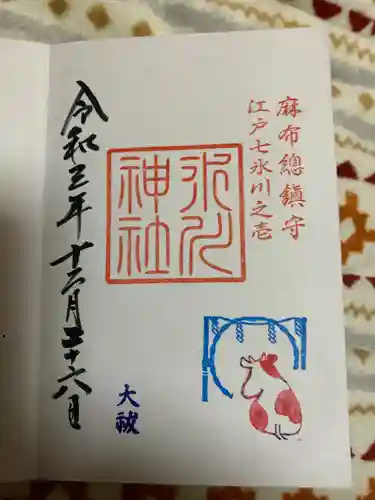 麻布總鎮守
江戸七氷川之壱
氷川
神社
大祓
令和三年十二月二十八日